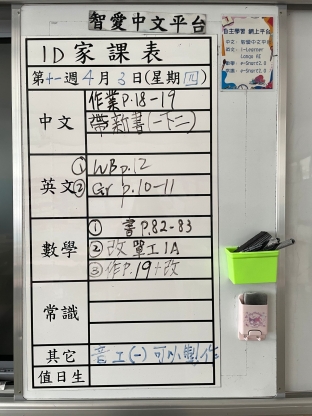 智愛中文平台
1D 家課表
第十一週 4月3日(星期四)
中文 作業 P.18-19
帶新書(一十二)
英文 ① WB p.12
② Gr p.10-11
數學 ① 書 P.82-83
② 改 單工 1A
③ 作P.19+改
常識
其它 音工(一)可以製作
值日生
自主學習 網上平台
中文：智愛中文平台
英文：i-Learner